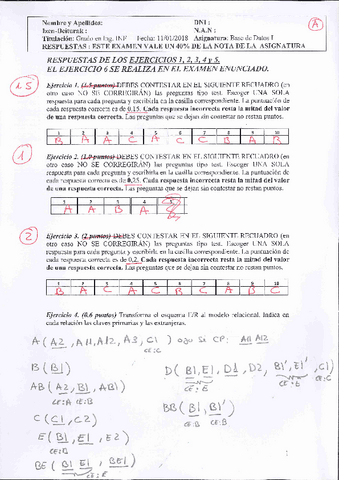 Nombre y Apellidos: DNI :
Izen-Deiturak : N.A.N :
Titulación: Grado en Ing. INF Fecha: 11/01/2018 Asignatura: Base de Datos I
RESPUESTAS : ESTE EXAMEN VALE UN 40% DE LA NOTA DE LA ASIGNATURA
A
RESPUESTAS DE LOS EJERCICIOS 1, 2, 3, 4 y 5.
EL EJERCICIO 6 SE REALIZA EN EL EXAMEN ENUNCIADO.
1.5
Ejercicio 1. (1.5 puntos) DEBES CONTESTAR EN EL SIGUIENTE RECUADRO (en
otro caso NO SE CORREGIRÁN) las preguntas tipo test. Escoger UNA SOLA
respuesta para cada pregunta y escribirla en la casilla correspondiente. La puntuación de
cada respuesta correcta es de 0.15. Cada respuesta incorrecta resta la mitad del valor
de una respuesta correcta. Las preguntas que se dejan sin contestar no restan puntos.
1 2 3 4 5 6 7 8 9 10
B A A C A C C B B A
1
Ejercicio 2. (1.0 puntos) DEBES CONTESTAR EN EL SIGUIENTE RECUADRO (en
otro caso NO SE CORREGIRÁN) las preguntas tipo test. Escoger UNA SOLA
respuesta para cada pregunta y escribirla en la casilla correspondiente. La puntuación de
cada respuesta correcta es de 0.25. Cada respuesta incorrecta resta la mitad del valor
de una respuesta correcta. Las preguntas que se dejan sin contestar no restan puntos.
1 2 3 4 5
A A B A
2
Ejercicio 3. (2 puntos) DEBES CONTESTAR EN EL SIGUIENTE RECUADRO (en
otro caso NO SE CORREGIRÁN) las preguntas tipo test. Escoger UNA SOLA
respuesta para cada pregunta y escribirla en la casilla correspondiente. La puntuación de
cada respuesta correcta es de 0.2. Cada respuesta incorrecta resta la mitad del valor
de una respuesta correcta. Las preguntas que se dejan sin contestar no restan puntos.
1 2 3 4 5 6 7 8 9 10
B A C A C C B A B C
Ejercicio 4. (0,6 puntos) Transforma el esquema E/R al modelo relacional. Indica en
cada relación las claves primarias y las extranjeras.
A (A2, A11, A12, A3, C1) ojo si CP: A11 A12
CE:C
B (B1) D (B1, E1, D1, D2, B1', E1', C1)
CE:E CE:E CE:C
AB (A2, B1, AB1)
CE:A CE:B
BB (B1, B1')
CE:B CE:B
C (C1, C2)
E (B1, E1, E2)
CE:B
BE (B1 E1, B1)